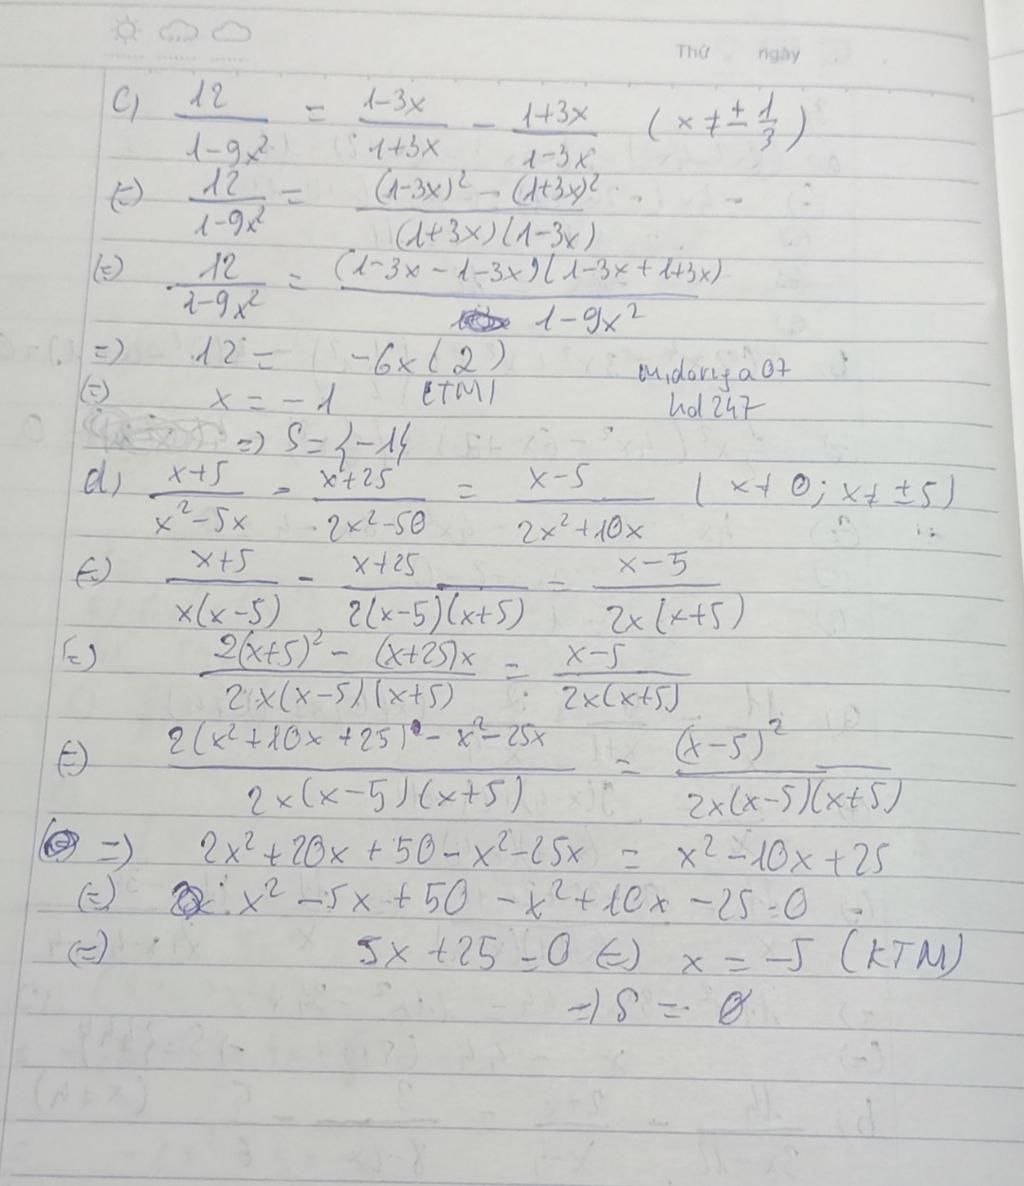 Thứ ngày
c) 12/(1-9x²) = (1-3x)/(1+3x) - (1+3x)/(1-3x) (x ≠ ± 1/3)
(=) 12/(1-9x²) = ((1-3x)² - (1+3x)²)/((1+3x)(1-3x))
(=) 12/(1-9x²) = ((1-3x-1-3x)(1-3x+1+3x))/(1-9x²)
=) 12 = -6x(2)
(=) x = -1 (TM)
midoriya07
hd247
=) S = {-1}
d) (x+5)/(x²-5x) - (x+25)/(2x²-50) = (x-5)/(2x²+10x) (x ≠ 0; x ≠ ±5)
(=) (x+5)/(x(x-5)) - (x+25)/(2(x-5)(x+5)) = (x-5)/(2x(x+5))
(=) (2(x+5)² - (x+25)x)/(2x(x-5)(x+5)) = (x-5)/(2x(x+5))
(=) (2(x²+10x+25) - x²-25x)/(2x(x-5)(x+5)) = (x-5)²/(2x(x-5)(x+5))
=) 2x²+20x+50-x²-25x = x²-10x+25
(=) x²-5x+50-x²+10x-25=0
(=) 5x+25=0 (=) x=-5 (KTM)
=) S = Ø